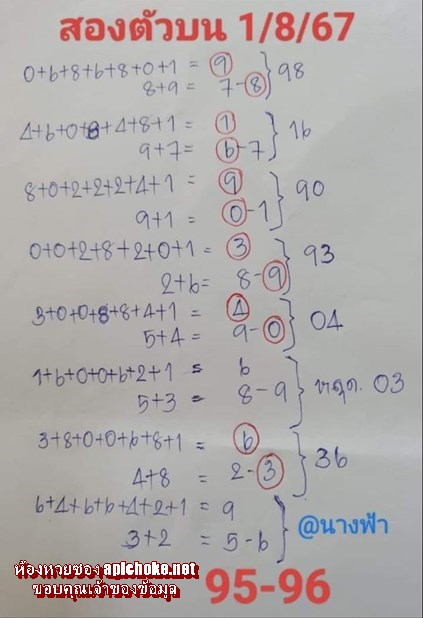 สองตัวบน 1/8/67
0+6+8+6+8+0+1 = 9
8+9 = 7-8 } 98
4+6+0+8+4+8+1 = 1
9+7 = 6-7 } 16
8+0+2+2+2+4+1 = 9
9+1 = 0-1 } 90
0+0+2+8+2+0+1 = 3
2+6 = 8-9 } 93
3+0+0+8+8+4+1 = 4
5+4 = 9-0 } 04
1+6+0+0+6+2+1 = 6
5+3 = 8-9 } หลุด. 03
3+8+0+0+6+8+1 = 6
4+8 = 2-3 } 36
6+4+6+6+4+2+1 = 9
3+2 = 5-6 } @นางฟ้า
ห้องหวยซอง apichoke.net
ขอบคุณเจ้าของข้อมูล
95-96